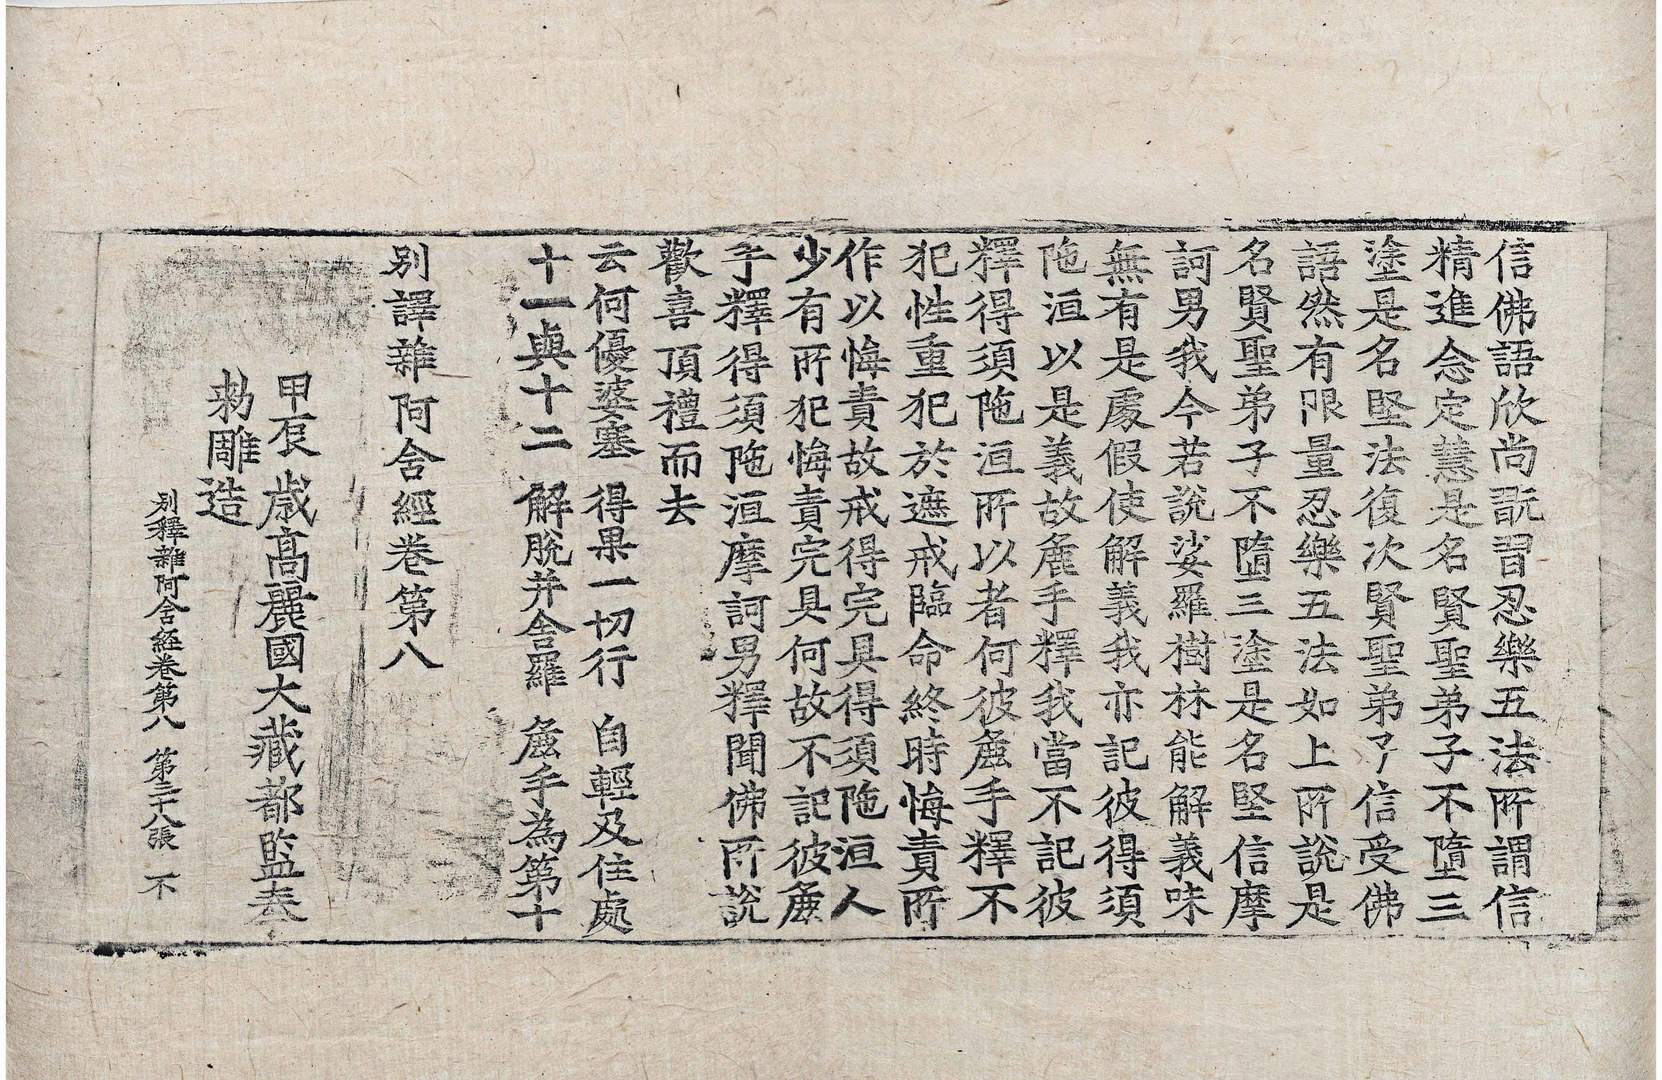 信佛語欣尚翫習忍樂五法所謂信
精進念定慧是名賢聖弟子不墮三
塗是名堅法復次賢聖弟子信受佛
語然有限量忍樂五法如上所說是
名賢聖弟子不墮三塗是名堅信摩
訶男我今若說娑羅樹林能解義味
無有是處假使解義我亦記彼得須
陁洹以是義故麁手釋我當不記彼
釋得須陁洹所以者何彼麁手釋不
犯性重犯於遮戒臨命終時悔責所
作以悔責故戒得完具得須陁洹人
少有所犯悔責完具何故不記彼麁
手釋得須陁洹摩訶男釋聞佛所說
歡喜頂禮而去
云何優婆塞 得果一切行 自輕及住處
十一與十二 解脫并舍羅 麁手為第十
別譯雜阿含經卷第八
甲辰歲高麗國大藏都監奉
勅雕造
別釋雜阿含経卷第八 第二十八張 不